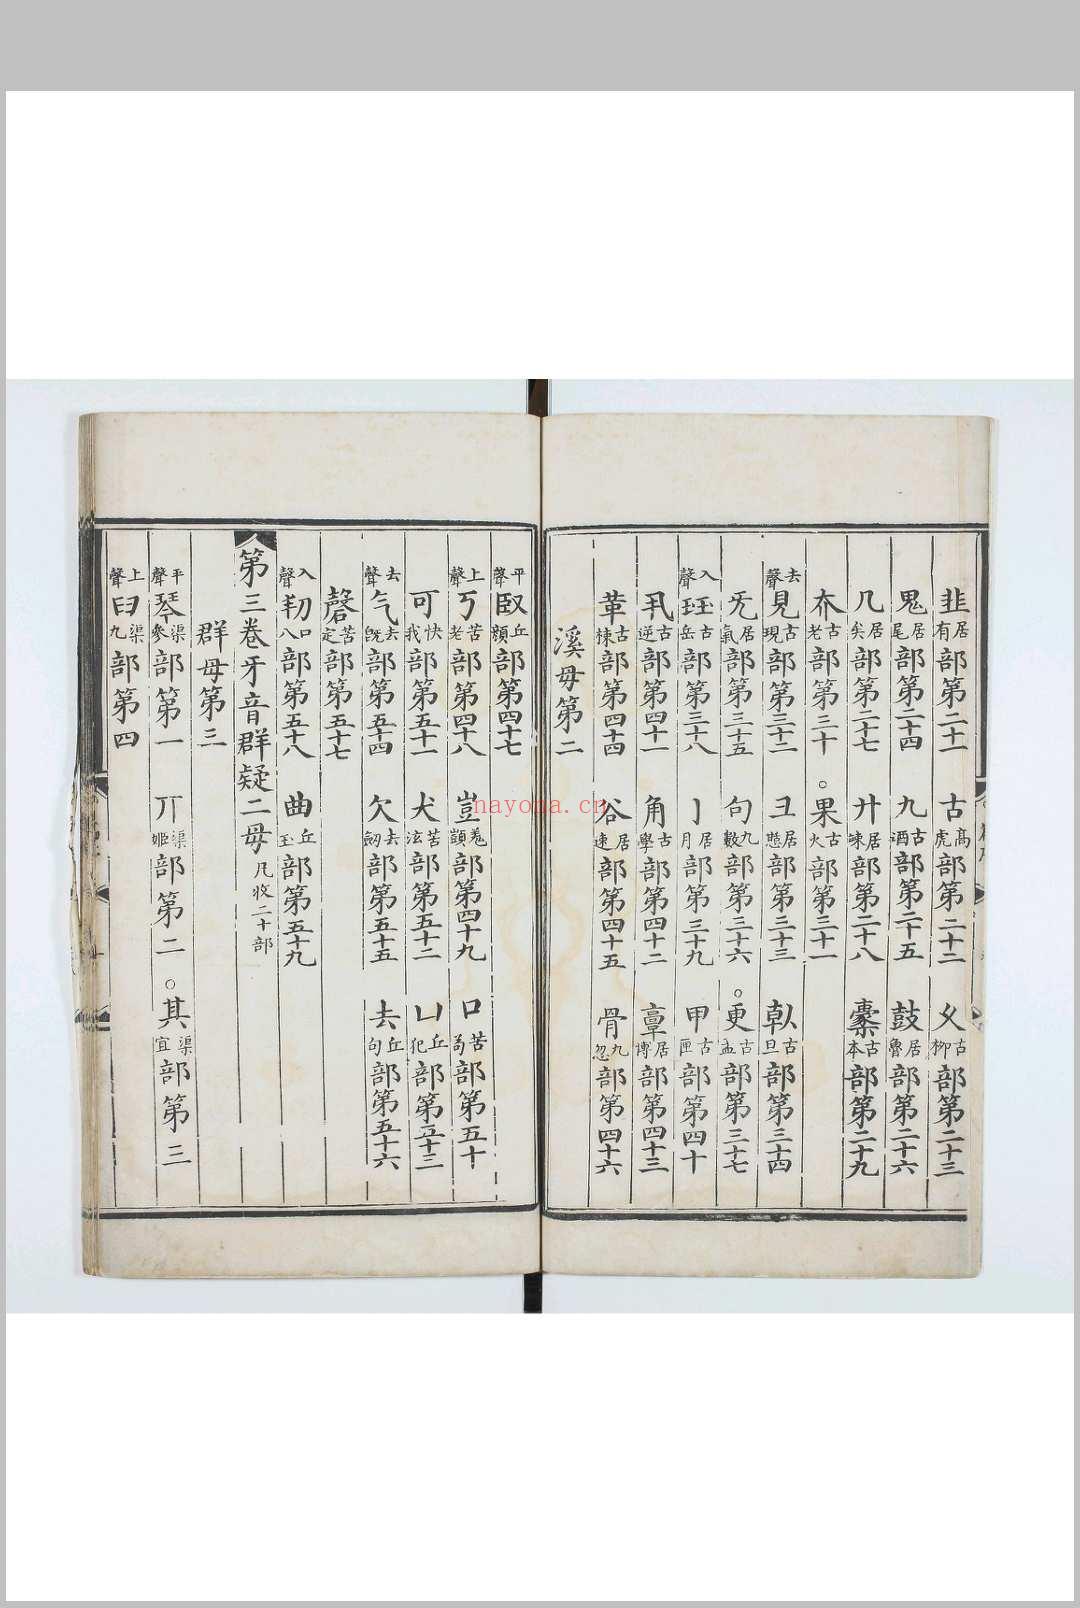 韭居有部第二十一 古高虎部第二十二 夊古柳部第二十三
鬼居尾部第二十四 九古酒部第二十五 鼓居魯部第二十六
几居矣部第二十七 廾居竦部第二十八 㯻古本部第二十九
夰古老部第三十 。果古火部第三十一
去聲見古現部第三十二 丑居憖部第三十三 倝古旦部第三十四
旡居氣部第三十五 句九數部第三十六 。更古孟部第三十七
入聲玨古岳部第三十八 亅居月部第三十九 甲古匣部第四十
丮古逆部第四十一 角古學部第四十二 𩫏居博部第四十三
革古棟部第四十四 谷居速部第四十五 骨九忽部第四十六
溪母第二
平聲臤丘顋部第四十七
上聲丂苦老部第四十八 豈卷顗部第四十九 口苦后部第五十
可快我部第五十一 犬苦泫部第五十二 凵丘犯部第五十三
去聲气去旣部第五十四 欠去劒部第五十五 去丘句部第五十六
磬苦定部第五十七
入聲㓞口八部第五十八 曲丘玉部第五十九
第三卷牙音群疑二母凡收二十部
群母第三
平聲琴渠參部第一 丌渠姬部第二 。其渠宜部第三
上聲臼渠九部第四
nayona.cn